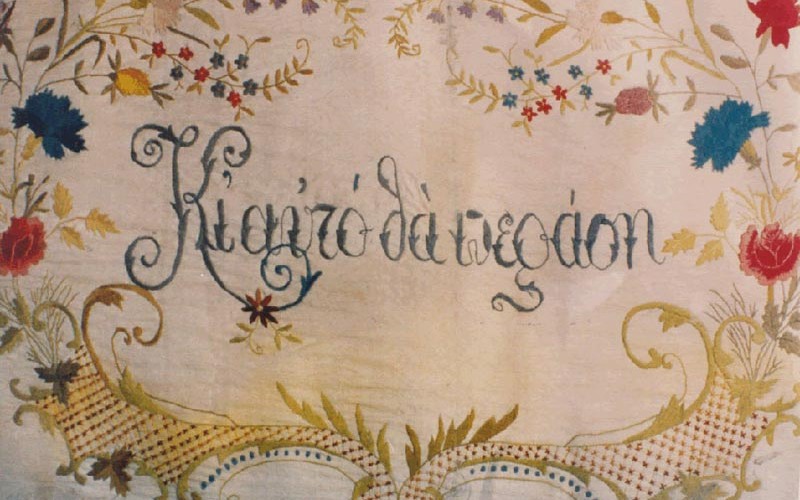 Κι αὐτό θὰ περάσῃ